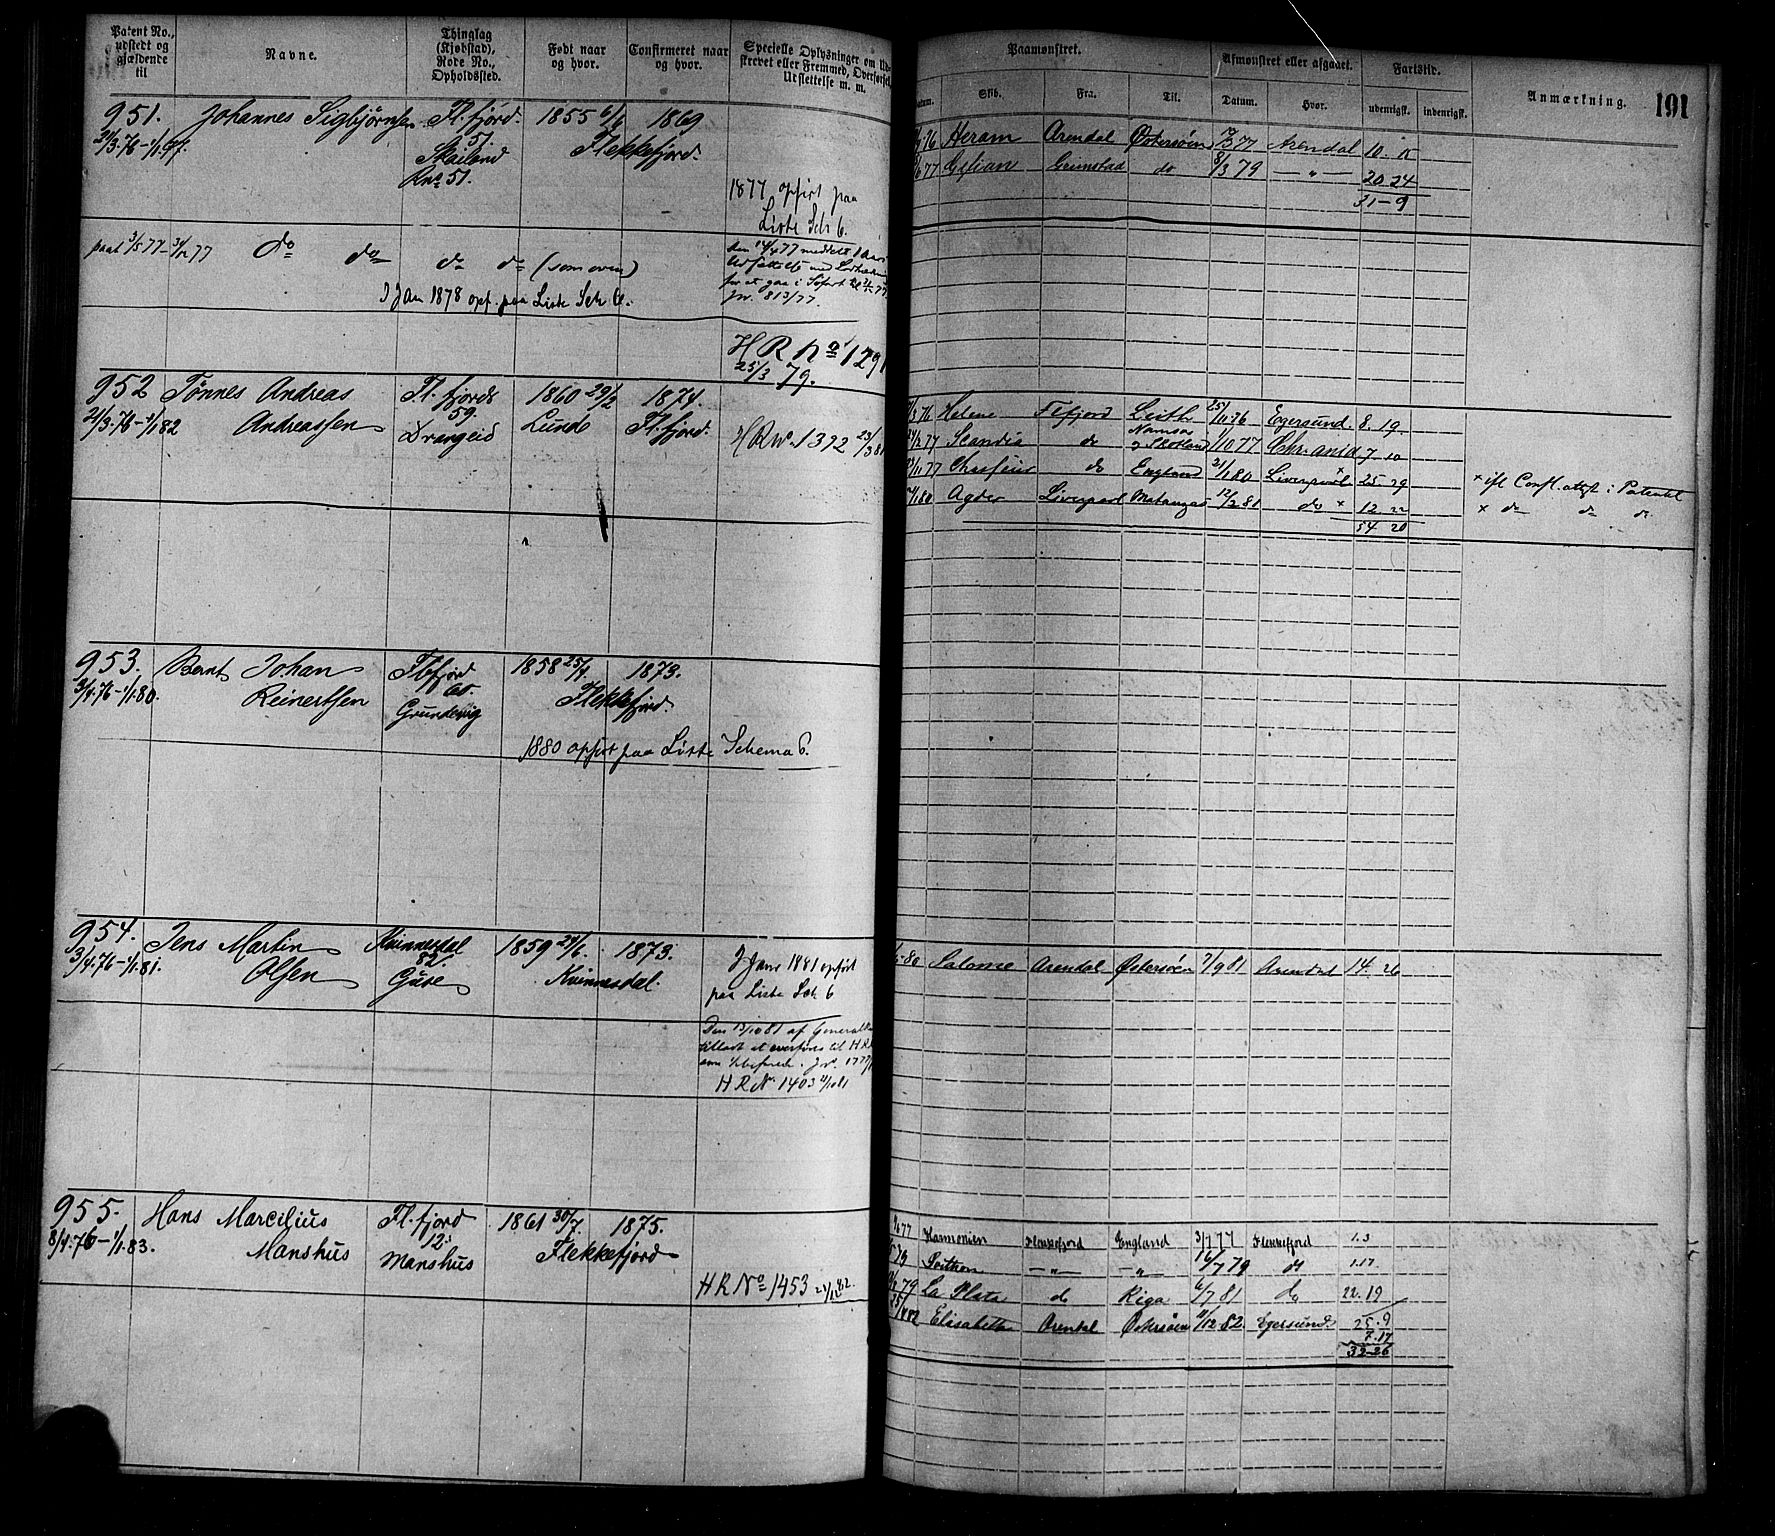 Patent No., udstedt og gjældende til
Navne.
Thinglag (Kjøbstad), Rode No., Opholdssted.
Født naar og hvor.
Confirmeret naar og hvor.
Specielle Oplysninger om Ud-
skrevet eller Fremmed, Overførsel
Udslettelse m. m.
951. Johannes Sigbjørnsen Fl.fjord. 1855 6/6 1869
21/3.76-1/1.77. 51. Flekkefjord.
Skailand
Rno 51.
1877 opført paa
Liste Sch 6.
3/5 77-31/12 77 do do do do (som oven)
den 14/4 77 meddelt 1 Aars
Jr. 813/77.
I Jan 1878 opf. paa Liste Sch 6.
H R No 1291
25/3 79.
952 Tønnes Andreas Fl.fjords 1860 29/2 1874.
21/3.76-1/1 82 Andreassen 59. Drangeid Lunde Fl.fjord.
H R No. 1392 23/3 81
953. Bernt Johan Flefjord 1858 25/4. 1873.
3/4.76-1/1.80. Reinertsen Grundevig Flekkefjord.
1880 opført paa Liste Schema 6.
954. Jens Martin Kvinnesdal 1859 24/6. 1873.
3/4.76-1/1.81. Olsen 82. Kvinnesdal.
I Jan 1881 opført
paa Liste Sch 6
Den 13/10 81 af General
tilladt at overføres til H R
H R No. 1403 11/10 81
955. Hans Marcilius Fl.fjord 1861 30/7. 1875.
8/4.76-1/1.83. Manshus 12. Manshus Flekkefjord
H R No 1453
Paamønstret.
Afmønstret eller afgaaet.
Fartstid.
Anmærkning. 191
Datum. Skib. Fra. Til. Datum. Hvor. udenrigsk. indenrigsk.
76 Heram Arendal Østersøen 77 Arendal 10. 15
77 Grimstad do 8/3 79 - " - 20 24
31-9
76 Helene Flfjord Leith 25/11.76 Eggersund. 8. 19.
77 Scandia do Namsos 77 7 10
77 do England 21/1 80 Liverpool x 25 29 x
80 Agder Liverpool Matanzas 12/2 81 do x 12 22 x do do do
54 20
80 Salome Arendal Østersøen 7/9 81 Arendal 14. 26
77 Harmonien Flekkefjord England 3/7 77 Flekkefjord 1.3
79 - " - - " - 16/7 79 do 1.17
79 La Plata do Riga 6/7 81 do 22.19
82 Elisabeth Arendal Østersøen 11/12 82 Egersund. 25.9
7.17
32-26